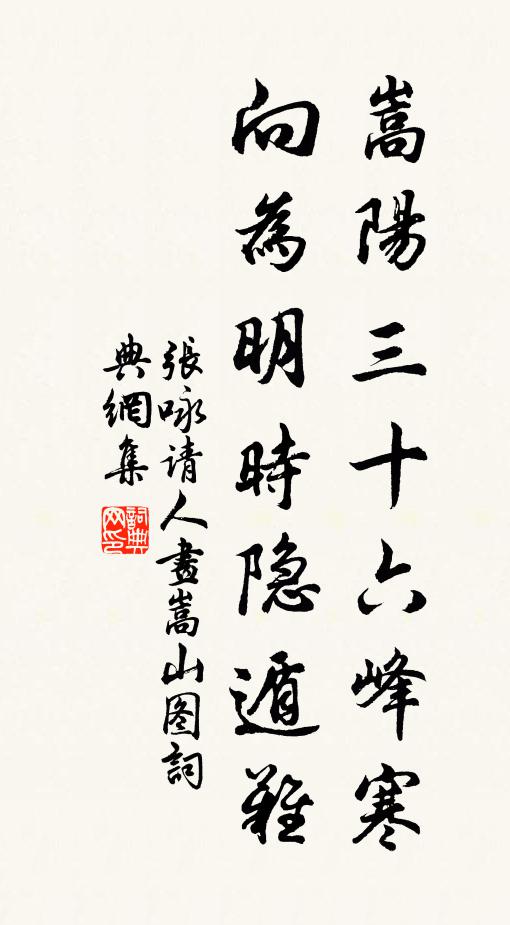 嵩陽三十六峰寒
向為明時隐遁難
張咏请人畫嵩山图詞
典網集
詞典
网印